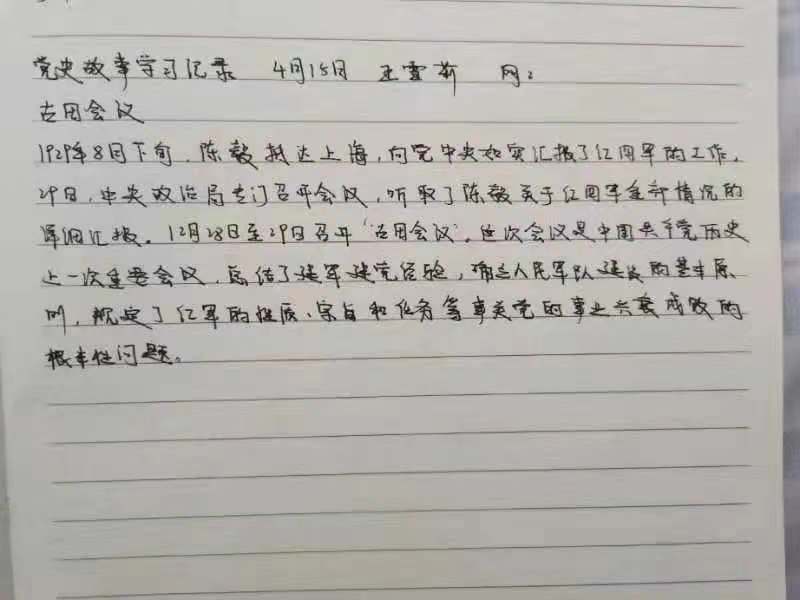 党史故事学习记录 4月15日 王雪莉 网:
古田会议
1929年8月下旬,陈毅抵达上海,向党中央如实汇报了红四军的工作,
29日,中央政治局专门召开会议,听取了陈毅关于红四军全部情况的
详细汇报。12月28日至29日召开“古田会议”,这次会议是中国共产党历史
上一次重要会议,总结了建军建党经验,确立人民军队建设的基本原
则,规定了红军的性质、宗旨和任务等事关党的事业兴衰成败的
根本性问题。